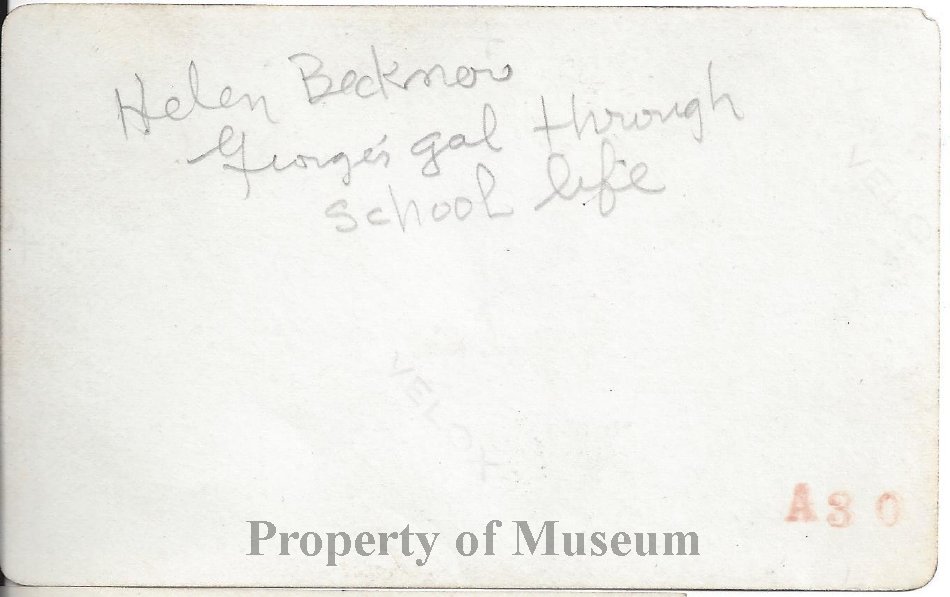 Helen Becknow
George's gal through
school life
VELOX
A30
Property of Museum